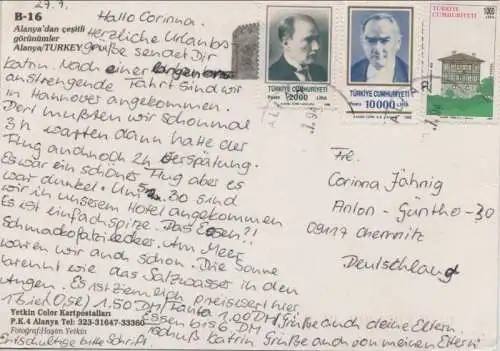 27.7.
Hallo Corinna.
B-16
Alanya'dan çeşitli
görünümler
Alanya/TURKEY
Herzliche Urlaubs
grüße sendet Dir
Katrin. Nach einer
anstrengende Fahrt sind wir
in Hannover angekommen.
Dort mußten wir schonmal
3h warten dann hatte der
Flug auchnoch 2h Verspätung.
Es war ein schöner Flug aber es
war dunkel. Um 5.30 sind
wir in unserem Hotel angekommen
Es ist einfach spitze. Das Essen?!
Am Meer
waren wir auch schon. Die Sonne
brennt wie das Salzwasser in den
Augen. Es ist ziemlich preiswert hier
1 Bier (0,5l) 1.50 DM, Fanta 1.00 DM, Grüße auch deine Eltern.
Essen bis 6 DM
Tschuß Katrin Grüße auch von meinen Eltern
Entschuldige bitte Schrift.
Yetkin Color Kartpostalları
P.K.4 Alanya Tel: 323-31647-33360
Fotoğraf: Haşim Yetkin
TÜRKİYE CUMHURİYETİ
Posta 2000 LİRA
TÜRKİYE CUMHURİYETİ
Posta 10000 LİRA
1000
LİRA
TÜRKİYE CUMHURİYETİ
Fr.
Corinna Jähnig
Anton-Günther-30
09117 Chemnitz
Deutschland